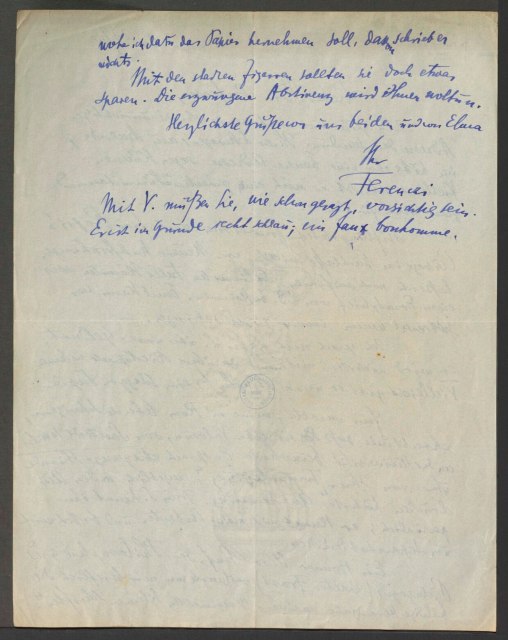 woher ich dazu das Papier hernehmen soll, davon schrieb er
nichts.
Mit den starken Zigarren sollten Sie doch etwas
sparen. Die erzwungene Abstinenz wird Ihnen wohltun.
Herzlichste Grüße von uns beiden und von Elma
Ihr
Ferenczi
Mit V. müßen Sie, wie schon gesagt, vorsichtig sein.
Er ist im Grunde recht schlau; ein faux bonhomme.